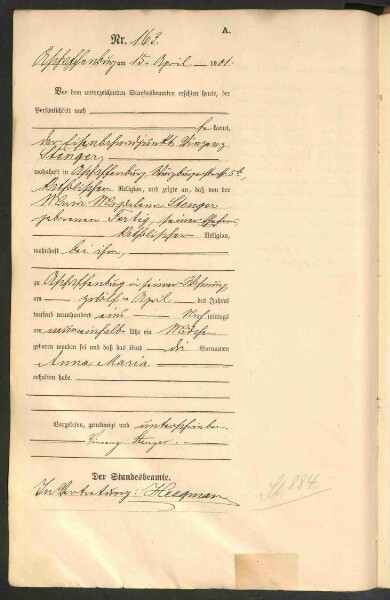 A.
Nr. 163.
Aschaffenburg am 15. April 1901.
Vor dem unterzeichneten Standesbeamten erschien heute, der
Persönlichkeit nach
be kannt,
der Eisenbahnadjunkt Vinzenz
Stenger,
wohnhaft in Aschaffenburg, Würzburgerstraße 5
katholischer Religion, und zeigte an, daß von der
Maria Magdalena Stenger
geborenen Fertig, seiner Ehefrau
katholischer Religion,
wohnhaft bei ihm,
zu Aschaffenburg in seiner Wohnung,
am zwölften April des Jahres
tausend neunhundert eins Nach mittags
um Uhr ein Mädchen
geboren worden sei und daß das Kind die Vornamen
Anna Maria
erhalten habe.
Vorgelesen, genehmigt und unterschrieben
Vinzenz Stenger.
Der Standesbeamte.
In Vertretung: Heegmann
884